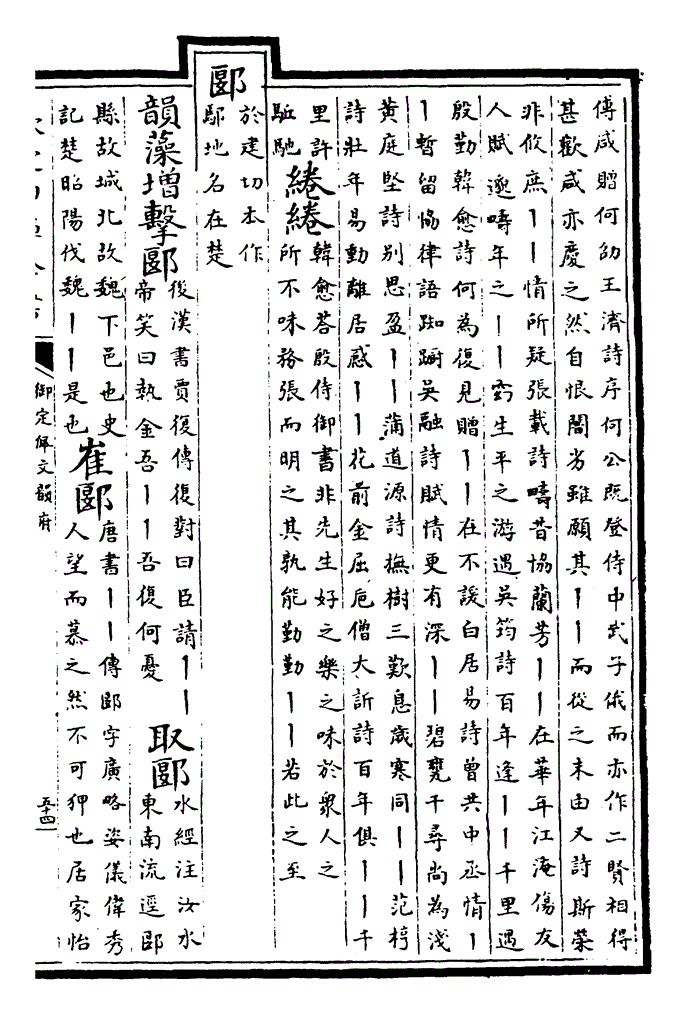 傅咸贈何劭王濟詩序何公既登侍中武子俄而亦作二賢相得
甚歡咸亦慶之然自恨闇劣雖願其丨丨而從之末由又詩斯榮
非攸庶丨丨情所疑張載詩疇昔協蘭芳丨丨在華年江淹傷友
人賦邈疇年之丨丨窮生平之游遇吳筠詩百年逢丨丨千里遇
殷勤韓愈詩何為復見贈丨丨在不諼白居易詩曾共中丞情丨
丨暫留協律語踟蹰吳融詩賦情更有深丨丨碧甃千尋尚為淺
黄庭堅詩别思盈丨丨蒲道源詩撫樹三歎息歲寒同丨丨范梈
詩壯年易動離居感丨丨花前金屈巵僧大訢詩百年俱丨丨千
里許
駈馳
綣綣
韓愈荅殷侍御書非先生好之樂之味於衆人之
所不味務張而明之其孰能勤勤丨丨若此之至
郾
於建切本作
鄢地名在楚
韻藻增擊郾
後漢書賈復傳復對曰臣請丨丨
帝笑曰執金吾丨丨吾復何憂
取郾
水經注汝水
東南流逕郾
縣故城北故魏下邑也史
記楚昭陽伐魏丨丨是也
崔郾
唐書丨丨傳郾字廣略姿儀偉秀
人望而慕之然不可狎也居家怡
御定佩文韻府
五十四